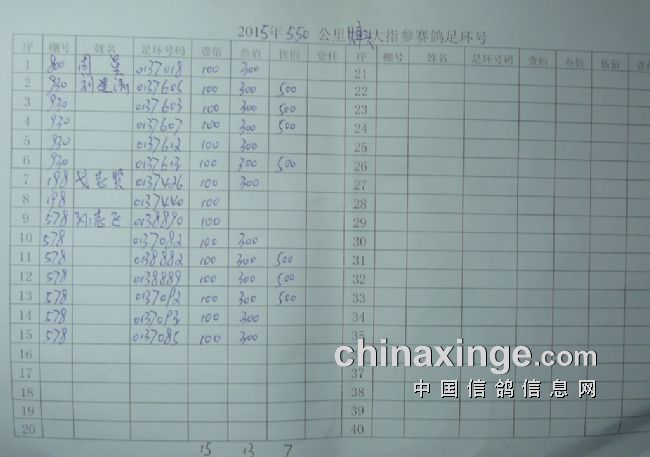 2015年550公里 大指参赛鸽足环号
序 棚号 姓名 足环号码 壹佰 叁佰 伍佰 壹仟 序 棚号 姓名 足环号码 壹佰 叁佰 伍佰 壹仟
1 周 0137018 100 300 21
2 930 刘建 0137605 100 300 500 22
3 930 0137603 100 300 500 23
4 930 0137607 100 300 500 24
5 930 0137612 100 300 25
6 930 0137613 100 300 500 26
7 198 戈志贤 0137426 100 300 27
8 198 0137440 100 28
9 578 刘志飞 0138890 100 29
10 578 0137082 100 300 30
11 578 0138882 100 300 500 31
12 578 0138889 100 300 500 32
13 578 0137092 100 300 500 33
14 578 0137093 100 300 34
15 578 0137085 100 300 35
16
chinaxinge.com
17 37
中国信鸽信息网
18 38
19 39
20 40
15 13 7